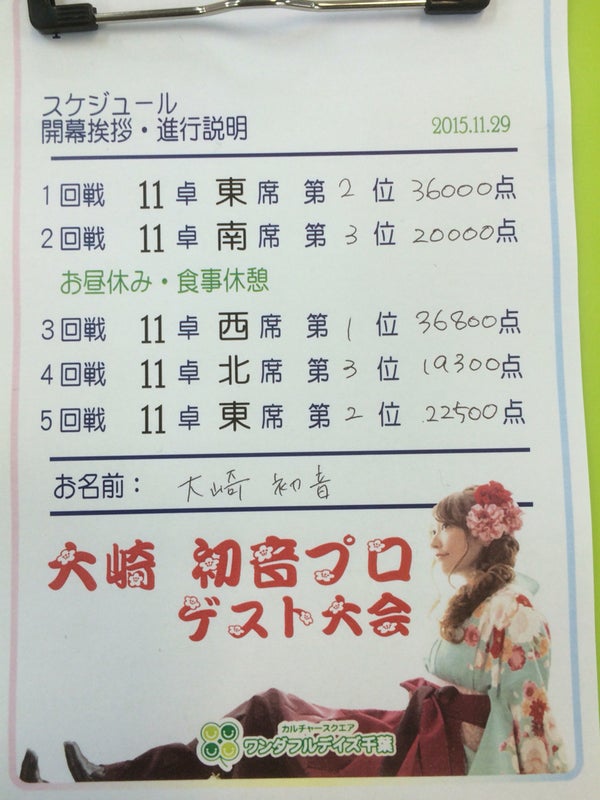 スケジュール
開幕挨拶・進行説明 2015.11.29
1回戦 11卓 東席 第2位 36000点
2回戦 11卓 南席 第3位 20000点
お昼休み・食事休憩
3回戦 11卓 西席 第1位 36800点
4回戦 11卓 北席 第3位 19300点
5回戦 11卓 東席 第2位 22500点
お名前： 大崎 初音
大崎 初音プロ
ゲスト大会
カルチャースクエア
ワンダフルデイズ千葉